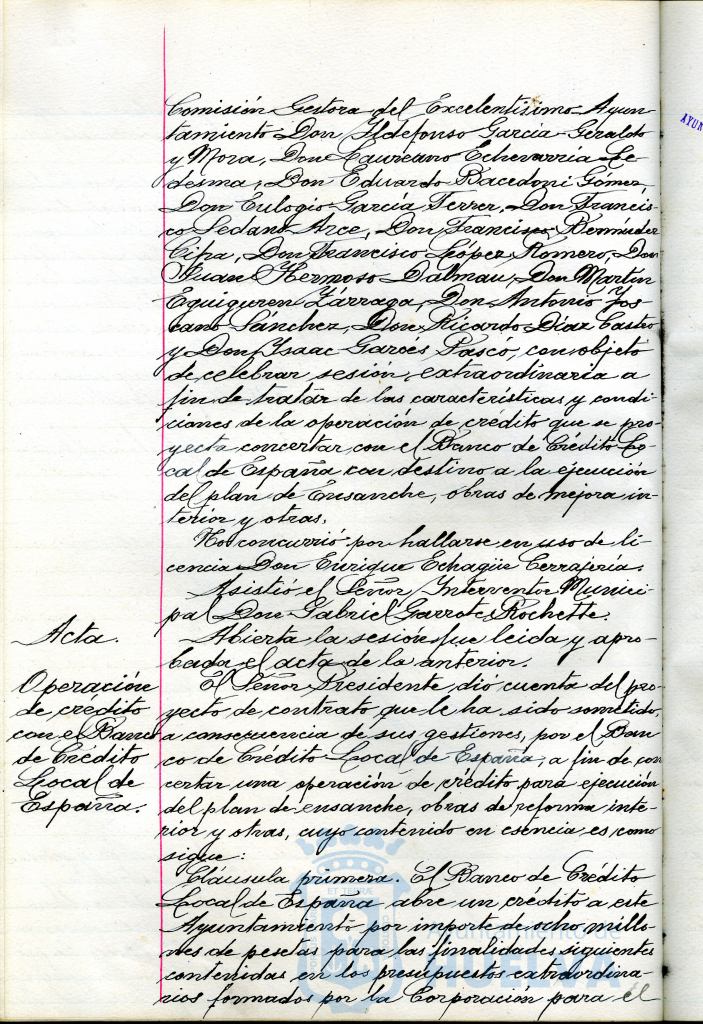 Comisión Gestora del Excelentísimo Ayun-
tamiento Don Ildefonso García-Geraldo
y Mora, Don Laureano Echevarría Le-
desma, Don Eduardo Bacedoni Gómez,
Don Eulogio García Ferrer, Don Francis-
co Sedano Arce, Don Francisco Bermúdez
Cifra, Don Francisco López Romero, Don
Juan Hermoso Dalmau, Don Martín
Eguiguren Zárraga, Don Antonio Jos-
cano Sánchez, Don Ricardo Díaz Castro
y Don Isaac Garcés Pascó, con objeto
de celebrar sesión extraordinaria a
fin de tratar de las características y condi-
ciones de la operación de crédito que se pro-
yecta concertar con el Banco de Crédito Lo-
cal de España con destino a la ejecución
del plan de Ensanche, obras de mejora in-
terior y otras.
No concurrió por hallarse en uso de li-
cencia Don Enrique Echagüe Cerrajería.
Asistió el Señor Interventor Munici-
pal Don Gabriel Garrot Rochette.
Acta.
Abierta la sesión fue leida y apro-
bada el acta de la anterior.
Operación
de crédito
con el Banco
de Crédito
Local de
España.
El Señor Presidente dió cuenta del pro-
yecto de contrato que le ha sido sometido,
a consecuencia de sus gestiones, por el Ban-
co de Crédito Local de España, a fin de con-
certar una operación de crédito para ejecución
del plan de ensanche, obras de reforma inte-
rior y otras, cuyo contenido en esencia es como
sigue:
Cláusula primera. El Banco de Crédito
Local de España abre un crédito a este
Ayuntamiento por importe de ocho millo-
nes de pesetas para las finalidades siguientes
contenidas en los presupuestos extraordina-
rios formados por la Corporación para el
AYUN
Ayuntamiento de
HUELVA